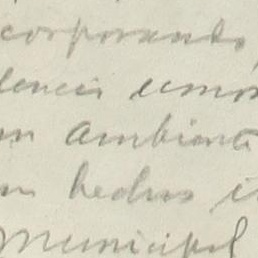 corporando,
dencia emo
un ambiente
en hechos i
Municipal